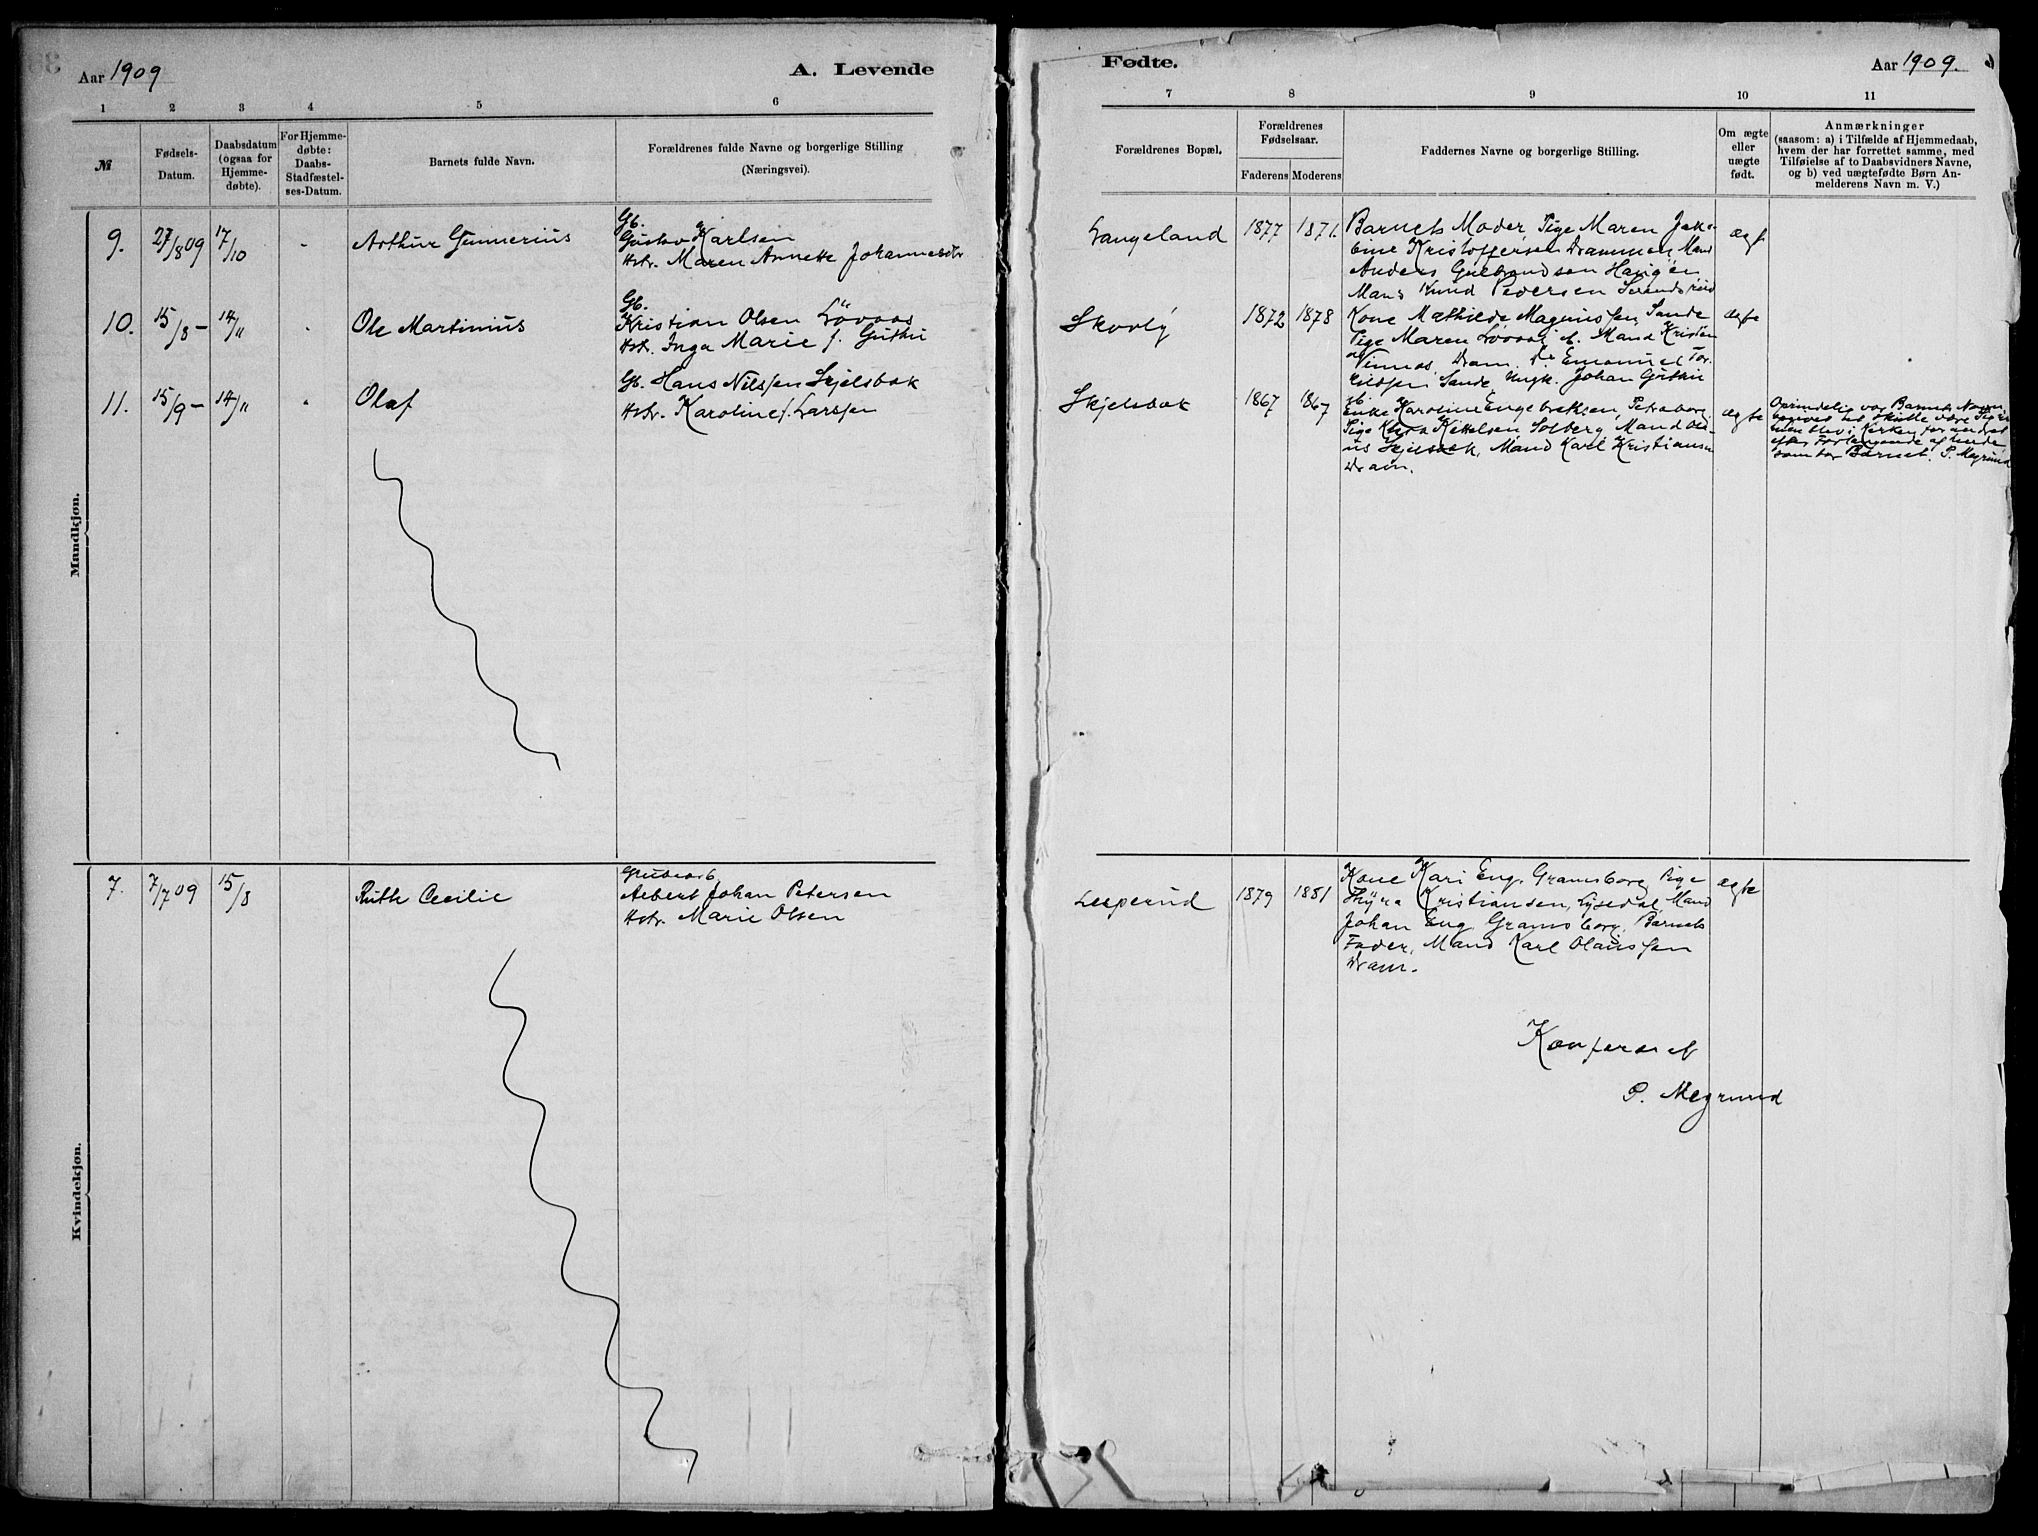 Aar 1909
A. Levende
1 2 3 4 5 6
№
Fødsels-
Datum.
Daabsdatum
(ogsaa for
Hjemme-
døbte).
For Hjemme-
døbte:
Daabs-
Stadfæstel-
ses-Datum.
Barnets fulde Navn.
Forældrenes fulde Navne og borgerlige Stilling
(Næringsvei).
Mandkjøn.
9. 27/8 09 17/10 Arthur Gunnerius
Gb.
Gustav Karlsen
Hstr. Maren Annette Johannesdtr
10. 15/8 - 14/11 Ole Martinius
Gb.
Kristian Olsen Lövaas
Hstr. Inga Marie f. Guthu
11. 15/9 - 14/11 Olaf
Gb. Hans Nilssen Skjelsbæk
Hstr. Karoline f. Larssen
Kvindekjøn.
7. 7/7 09 15/8 Ruth Cecilie
Grubearb.
Albert Johan Petersen
Hstr. Marie Olsen
Fødte.
Aar 1909.
7 8 9 10 11
Forældrenes Bopæl.
Forældrenes
Fødselsaar.
Faderens Moderens
Faddernes Navne og borgerlige Stilling.
Om ægte
eller
uægte
født.
Anmærkninger
(saasom: a) i Tilfælde af Hjemmedaab,
hvem der har forrettet samme, med
Tilføielse af to Daabsvidners Navne,
og b) ved uægtefødte Børn An-
melderens Navn m. V.)
Langeland 1877 1871.
Barnets Moder Pige Maren Jak-
bine Kristoffersen Drammen, Mand
Anders Gulbrandsen
Mand Knud Pedersen
ægt
Skovly 1872 1878
Kone Mathilde Magnussen, Sande
Pige Maren Lövaas Mand Kristen
Dram. Emanuel Tor-
Sande, Ungk. Johan Guthu
ægte
Skjelsbæk 1867 1867
Gb.
Enke Karoline Engebretsen,
Pige Klara Kittelsen Solberg Mand Ol-
us Skjelsbæk, Mand Karl Kristiansen
Dram.
ægte
Oprindelig var Barnets Navn
skulde være
blev i Kirken forandret
efter Forlangende af hende
som bar Barnet. P. Megrund
Lesperud 1879 1881
Kone Kari Eng. Gramsborg, Pige
Thyra Kristiansen, Lysedal, Mand
Johan Eng. Gramsborg, Barnets
Fader, Mand Karl Olaussen
Dram.
ægte
Konfereret
P. Megrund